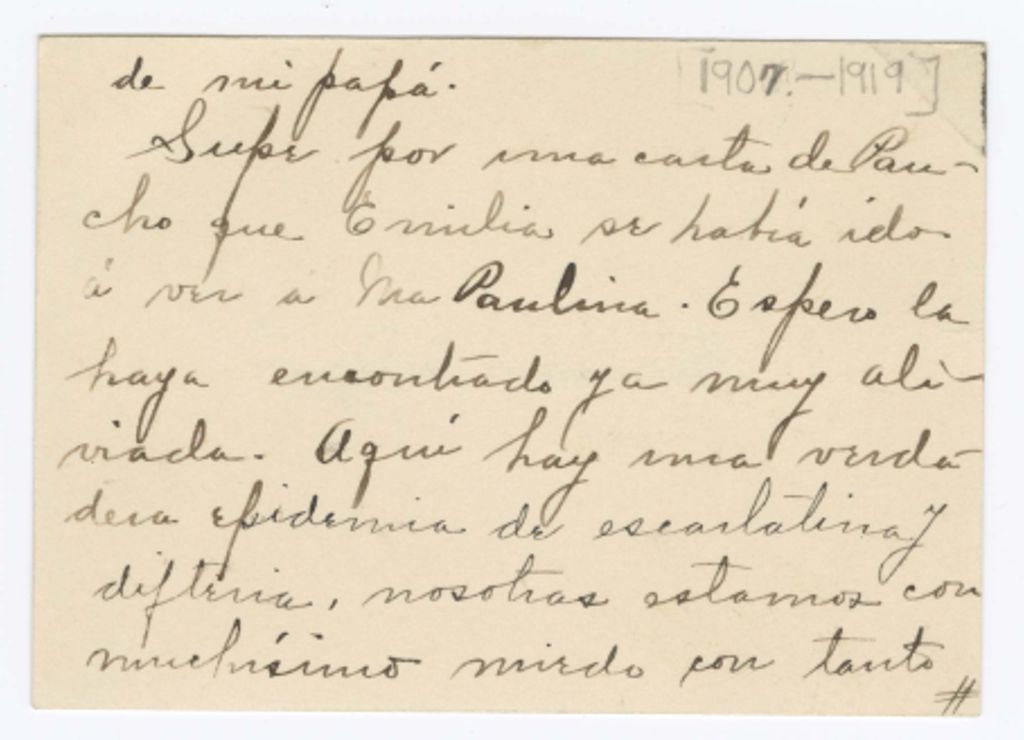 de mi papá. [1907.-1919]
Supe por una carta de Pan-
cho que Emilia se había ido
á ver a Ma Paulina. Espero la
haya encontrado ya muy ali-
viada. Aquí hay una verda-
dera epidemia de escarlatina y
difteria, nosotras estamos con
muchísimo miedo con tanto
#